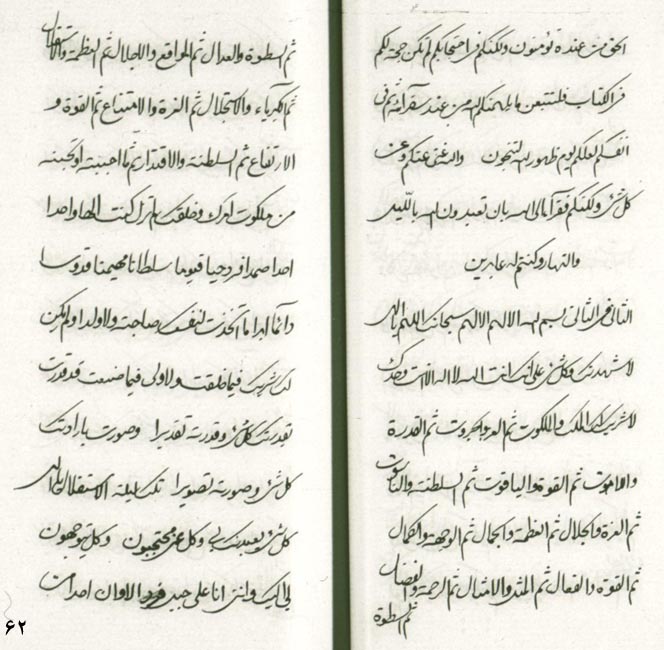 الحق من عنده تؤمنون ولكنكم فراحتجابكم لم تكن حجة لكم
فر الكتاب فلتتبعن ما يلهمنكم الله من عند سفرائه ثم في
انفسكم لعلكم يوم ظهور الله لتنجون والله غني عنكم وعن
كل شئ ولكنكم فقرآء الى الله بان تعبدون الله بالليل
والنهار وكنتم له عابدين
الثاني في الثاني بسم الله الاله الاله سبحانك اللهم يا الهي
لاشهدنك وكل شئ على انك انت الله لا اله الا انت وحدك
لا شريك لك لك الملك والملكوت ثم العز والجبروت ثم القدرة
واللاهوت ثم القوة والياقوت ثم السلطنة والناسوت
ثم العزة والجلال ثم العظمة والجمال ثم الوجهة والكمال
ثم القوة والفعال ثم المثل والامثال ثم الرحمة والفضال
ثم السطوة
ثم السطوة والعدال ثم المواقع والاجلال ثم العظمة والاستقلال
ثم الكبرياء والاستجلال ثم العزة والامتناع ثم القوة و
الارتفاع ثم السلطنة والاقتدار ثم ما احببته او تحبنه
من ملكوت امرك وخلقك لم تزل كنت الها واحدا
احدا صمدا فردا حيا قيوما سلطانا مهيمنا قدوسا
دائما ابدا ما اتخذت لنفسك صاحبة ولا ولدا ولم يكن
لك شريك فيما خلقت ولا ولي فيما صنعت قد قدرت
بقدرتك كل شئ وقدرته تقديرا وصورت بارادتك
كل شئ وصورته تصويرا تكبدليلة الاستقلال يا الهي
كل شئ يعبدنك ربي وكل عن محتجبون وكل يتوجهون
الى اليك وانني انا على جبل فرد الاوان اصدات
۶۲